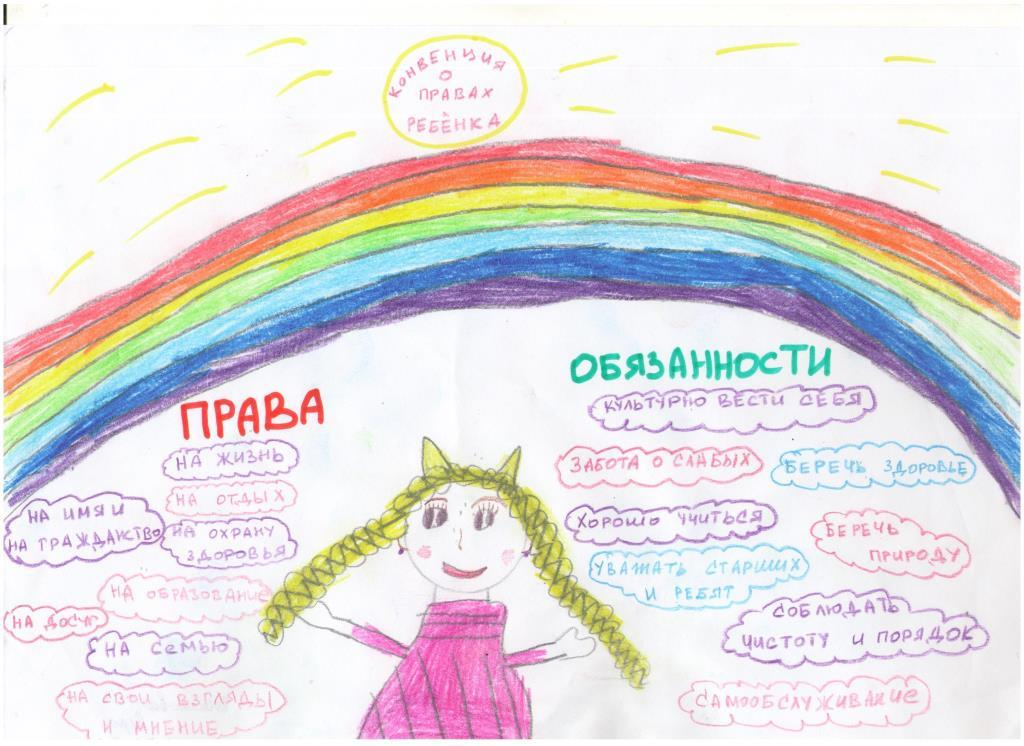 КОНВЕНЦИЯ
О
ПРАВАХ
РЕБЁНКА
ПРАВА
НА ЖИЗНЬ
НА ОТДЫХ
НА ИМЯ И
НА ГРАЖДАНСТВО
НА ОХРАНУ
ЗДОРОВЬЯ
НА ОБРАЗОВАНИЕ
НА ДОСУГ
НА СЕМЬЮ
НА СВОИ ВЗГЛЯДЫ
И МНЕНИЕ
ОБЯЗАННОСТИ
КУЛЬТУРНО ВЕСТИ СЕБЯ
ЗАБОТА О СЛАБЫХ
БЕРЕЧЬ ЗДОРОВЬЕ
ХОРОШО УЧИТЬСЯ
БЕРЕЧЬ
ПРИРОДУ
УВАЖАТЬ СТАРШИХ
И РЕБЯТ
СОБЛЮДАТЬ
ЧИСТОТУ И ПОРЯДОК
САМООБСЛУЖИВАНИЕ